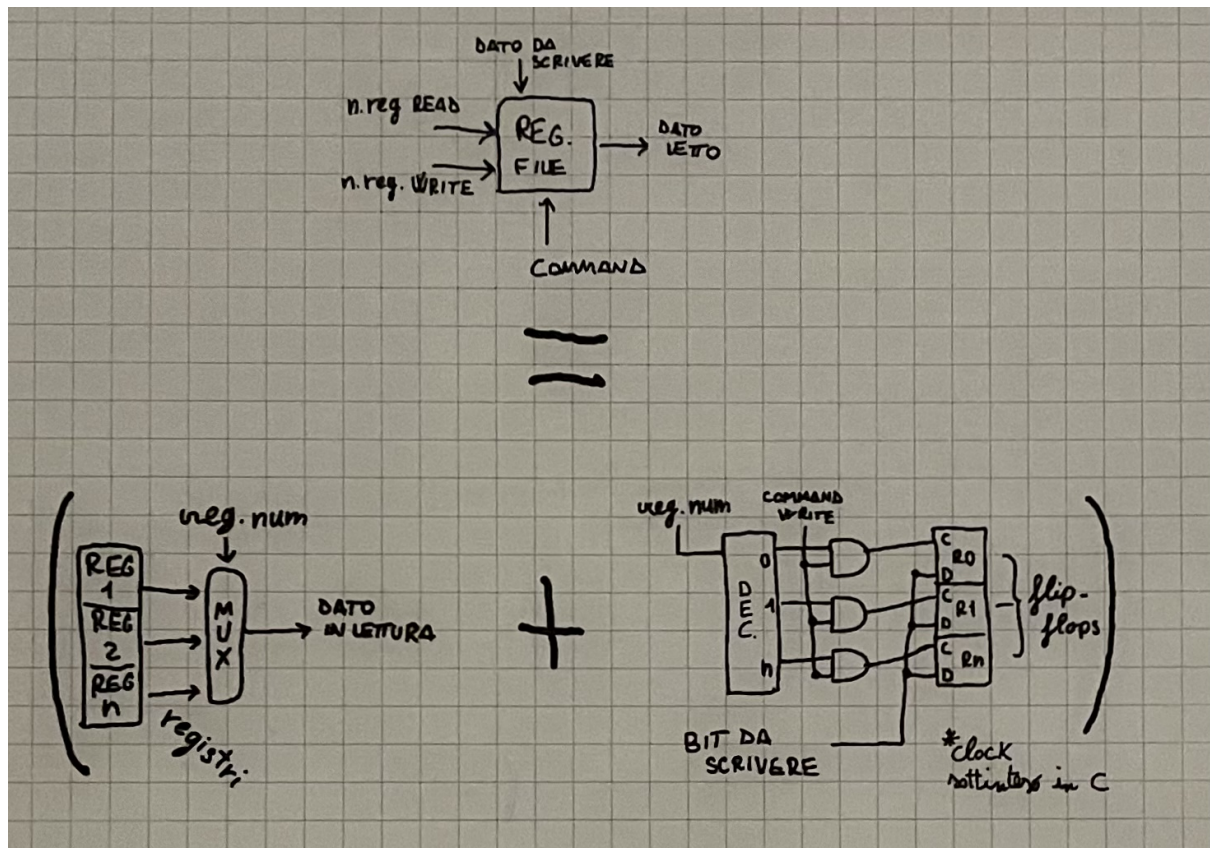 DATO DA
SCRIVERE
n.reg READ
REG.
FILE
DATO
LETTO
n.reg. WRITE
COMMAND
reg.num
REG
1
REG
2
REG
n
MUX
DATO
IN LETTURA
registri
reg.num
COMMAND
WRITE
DEC.
0
1
n
C
R0
D
C
R1
D
C
Rn
D
flip-
flops
BIT DA
SCRIVERE
*clock
sottinteso in C